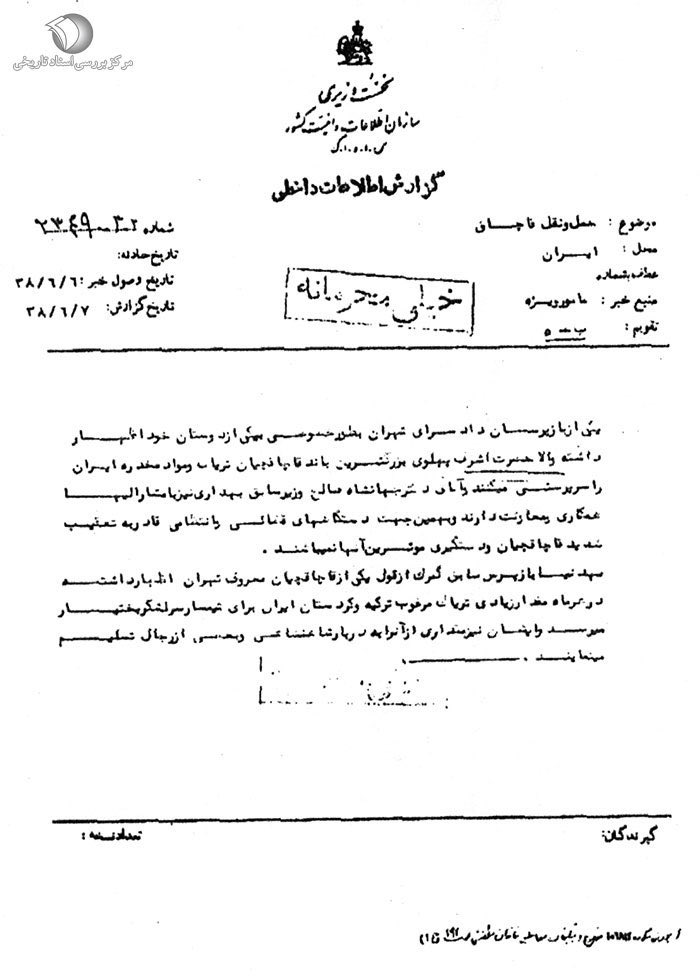 مرکز بررسی اسناد تاریخی
نخست وزیری
سازمان اطلاعات و امنیت کشور
س.ا.و.ا.ک
گزارش اطلاعات داخلی
موضوع : حمل و نقل قاچاق
شماره
محل : ایران
تاریخ حادثه:
عطف بشماره
تاریخ وصول خبر : ۳۸/۶/۶
منبع خبر : مامور ویژه
تاریخ گزارش: ۳۸/۶/۷
تقویم : ب - ۵
خیلی محرمانه
یکی از بازپرسان دادسرای تهران بطور خصوصی بیکی از دوستان خود اظهار
داشته والاحضرت اشرف پهلوی بزرگترین باند قاچاقچیان تریاک و مواد مخدره ایران
را سرپرستی میکنند و آقای دکتر جهانشاه صالح وزیر سابق بهداری نیز با مشارالیها
همکاری و معاونت دارند و بهمین جهت دستگاههای قضائی و انتظامی قادر به تعقیب
شدید قاچاقچیان و دستگیری موثرین آنها نمیباشند .
بازپرس سابق گمرک از قول یکی از قاچاقچیان معروف تهران اظهار داشته
در هر ماه مقدار زیادی تریاک مرغوب ترکیه و کردستان ایران برای تیمسار سرلشگر بختیار
میرسد و ایشان نیز مقداری از آنرا به دربار شاهنشاهی و بعضی از رجال تسلیم
مینمایند .
گیرندگان:
تعداد نسخه :